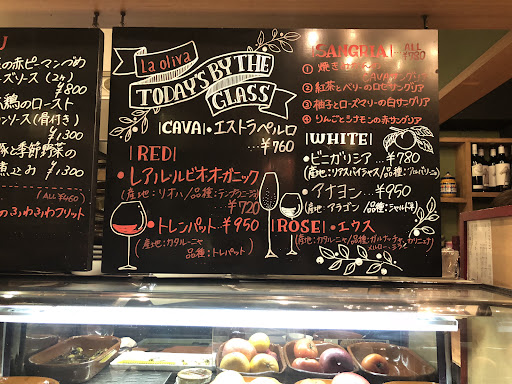 の赤ピーマンづめ
ズソース(2ヶ)
¥800
鶏のロースト
ンソース(骨付き)
¥1,300
豚と季節野菜の
煮込み ¥1,300
ALL ¥450
ふわふわフリット
La oliva
TODAY'S BY THE
GLASS
|CAVA|・エストラペルロ
…¥760
|RED|
・レアル・ルビオ オーガニック
(産地:リオハ/品種:テンプラニージョ)
¥720
・トレンパット…¥950
(産地:カタルーニャ
品種:トレパット)
|SANGRIA| ALL ¥780
① 焼き
CAVAサングリア
② 紅茶とベリーのロゼサングリア
③ 柚子とローズマリーの白サングリア
④ りんごとシナモンの赤サングリア
|WHITE|
・ビニガリシア…¥780
(産地:リアスバイシャス/品種:アルバリーニョ)
・アナヨン…¥950
(産地:アラゴン/品種:シャルドネ)
|ROSE|・エウス
(産地:カタルーニャ/品種:ガルナッチャ、カリニェナ
メルロー、シラー